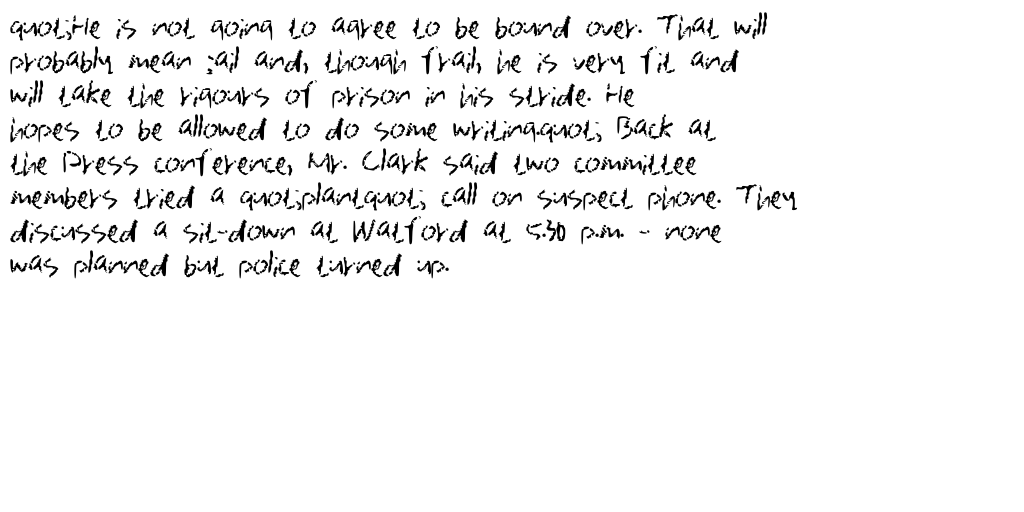 quot;He is not going to agree to be bound over. That will
probably mean jail and, though frail, he is very fit and
will take the rigours of prison in his stride. He
hopes to be allowed to do some writing.quot; Back at
the Press conference, Mr. Clark said two committee
members tried a quot;plantquot; call on suspect phone. They
discussed a sit-down at Watford at 5.30 p.m. - none
was planned but police turned up.